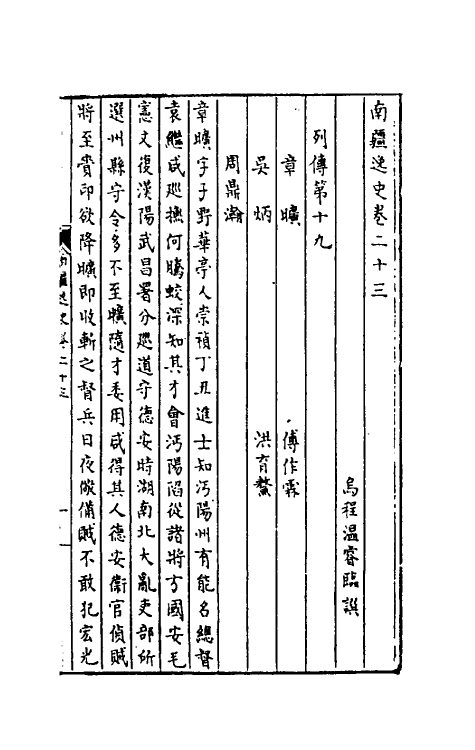 南疆逸史卷二十三
烏程溫睿臨譔
列傳第十九
章曠
傅作霖
吳炳
洪育鰲
周鼎瀚
章曠字子野華亭人崇禎丁丑進士知沔陽州有能名總督
袁繼咸巡撫何騰蛟深知其才會沔陽陷從諸將方國安毛
憲文復漢陽武昌署分巡道守德安時湖南北大亂吏部所
選州縣守令多不至曠隨才委用咸得其人德安衛官偵賊
將至賫印欲降曠即收斬之督兵日夜儆備賊不敢犯宏光
南疆逸史卷二十三
一